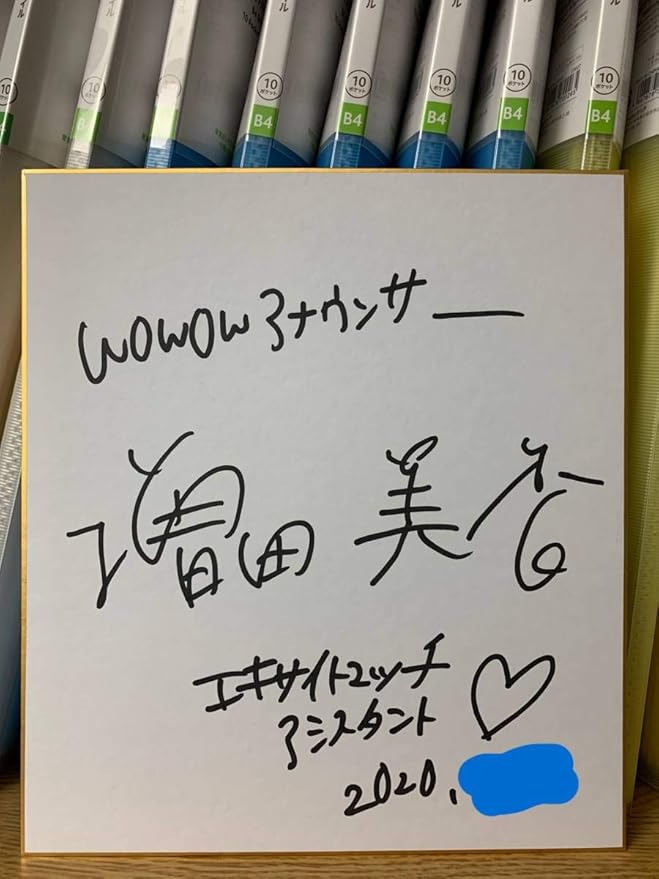 イル イル イル イル イル
10 ポケット 10 ポケット 10 ポケット 10 ポケット 10 ポケット
B4 B4 B4 B4 B4
WOWOWアナウンサー
増田美香
エキサイトマッチ
アシスタント
2020.